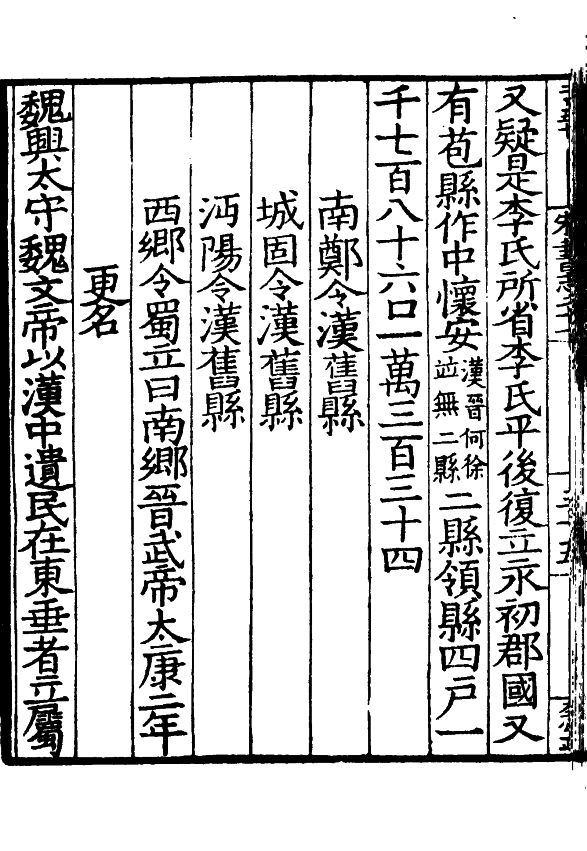 又疑是李氏所省李氏平後復立永初郡國又
有苞縣作中懷安漢晉何徐並無二縣二縣領縣四戶一
千七百八十六口一萬三百三十四
南鄭令漢舊縣
城固令漢舊縣
沔陽令漢舊縣
西鄉令蜀立曰南鄉晉武帝太康二年
更名
魏興太守魏文帝以漢中遺民在東垂者立屬